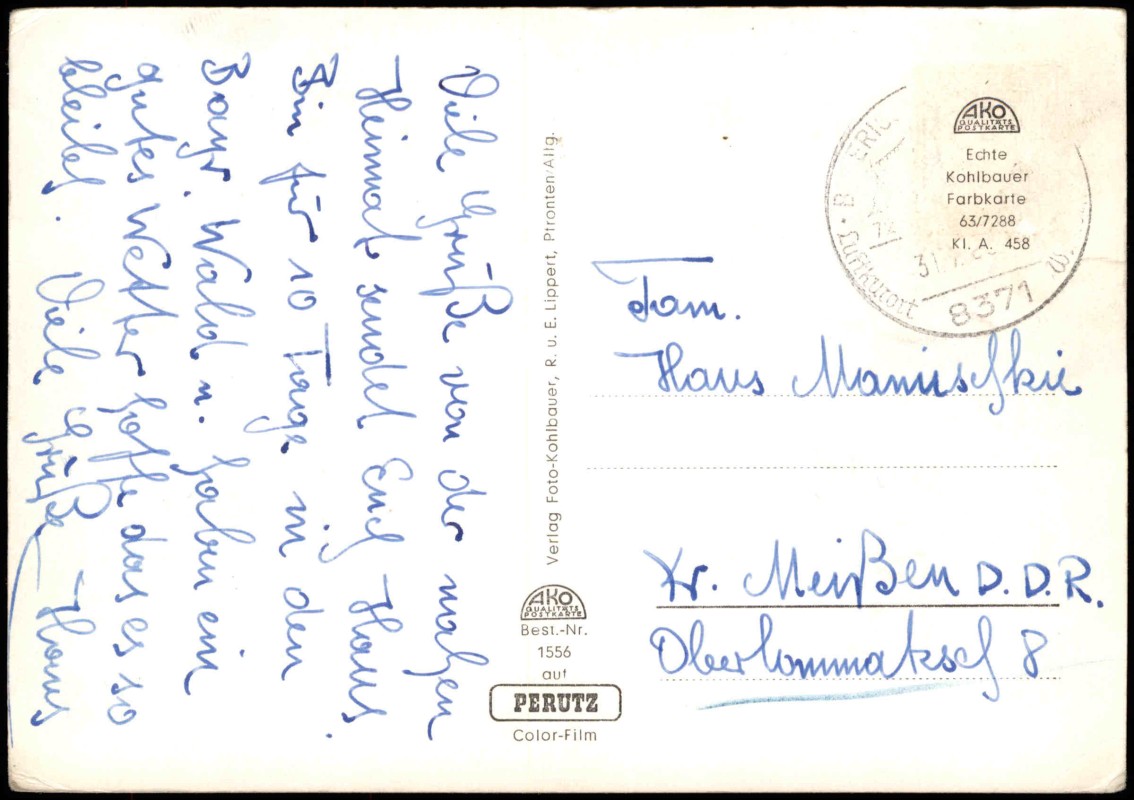 Viele Grüße von der nahen
Heimat sendet Euch Hans.
Bin für 10 Tage in den
Bayr. Wald u. haben ein
gutes Wetter hoffe das es so
bleibt. Viele Grüße Hans
Verlag Foto-Kohlbauer, R. u. E. Lippert, Pfronten/Allg.
AKO
QUALITÄTS
POSTKARTE
Best.-Nr.
1556
auf
PERUTZ
Color-Film
AKO
QUALITÄTS
POSTKARTE
Echte
Kohlbauer
Farbkarte
63/7288
Kl. A. 458
Luftkurort
8371
Fam.
Hans
Kr. Meißen D.D.R.
Oberlommatzsch 8